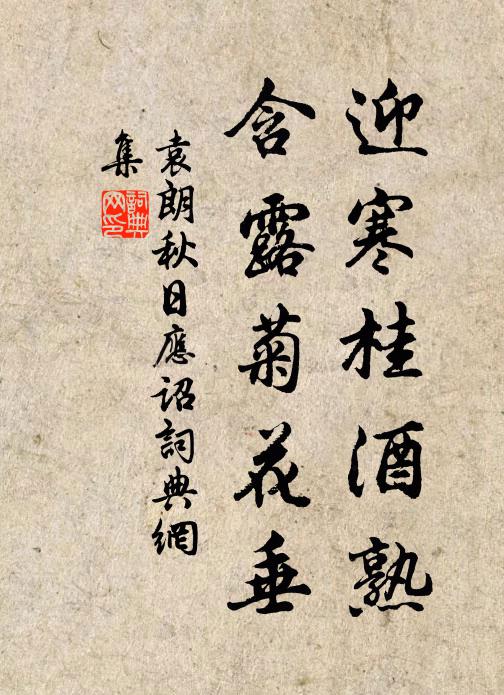 迎寒桂酒熟
含露菊花垂
袁朗秋日應詔詞典網
集
詞典
网印